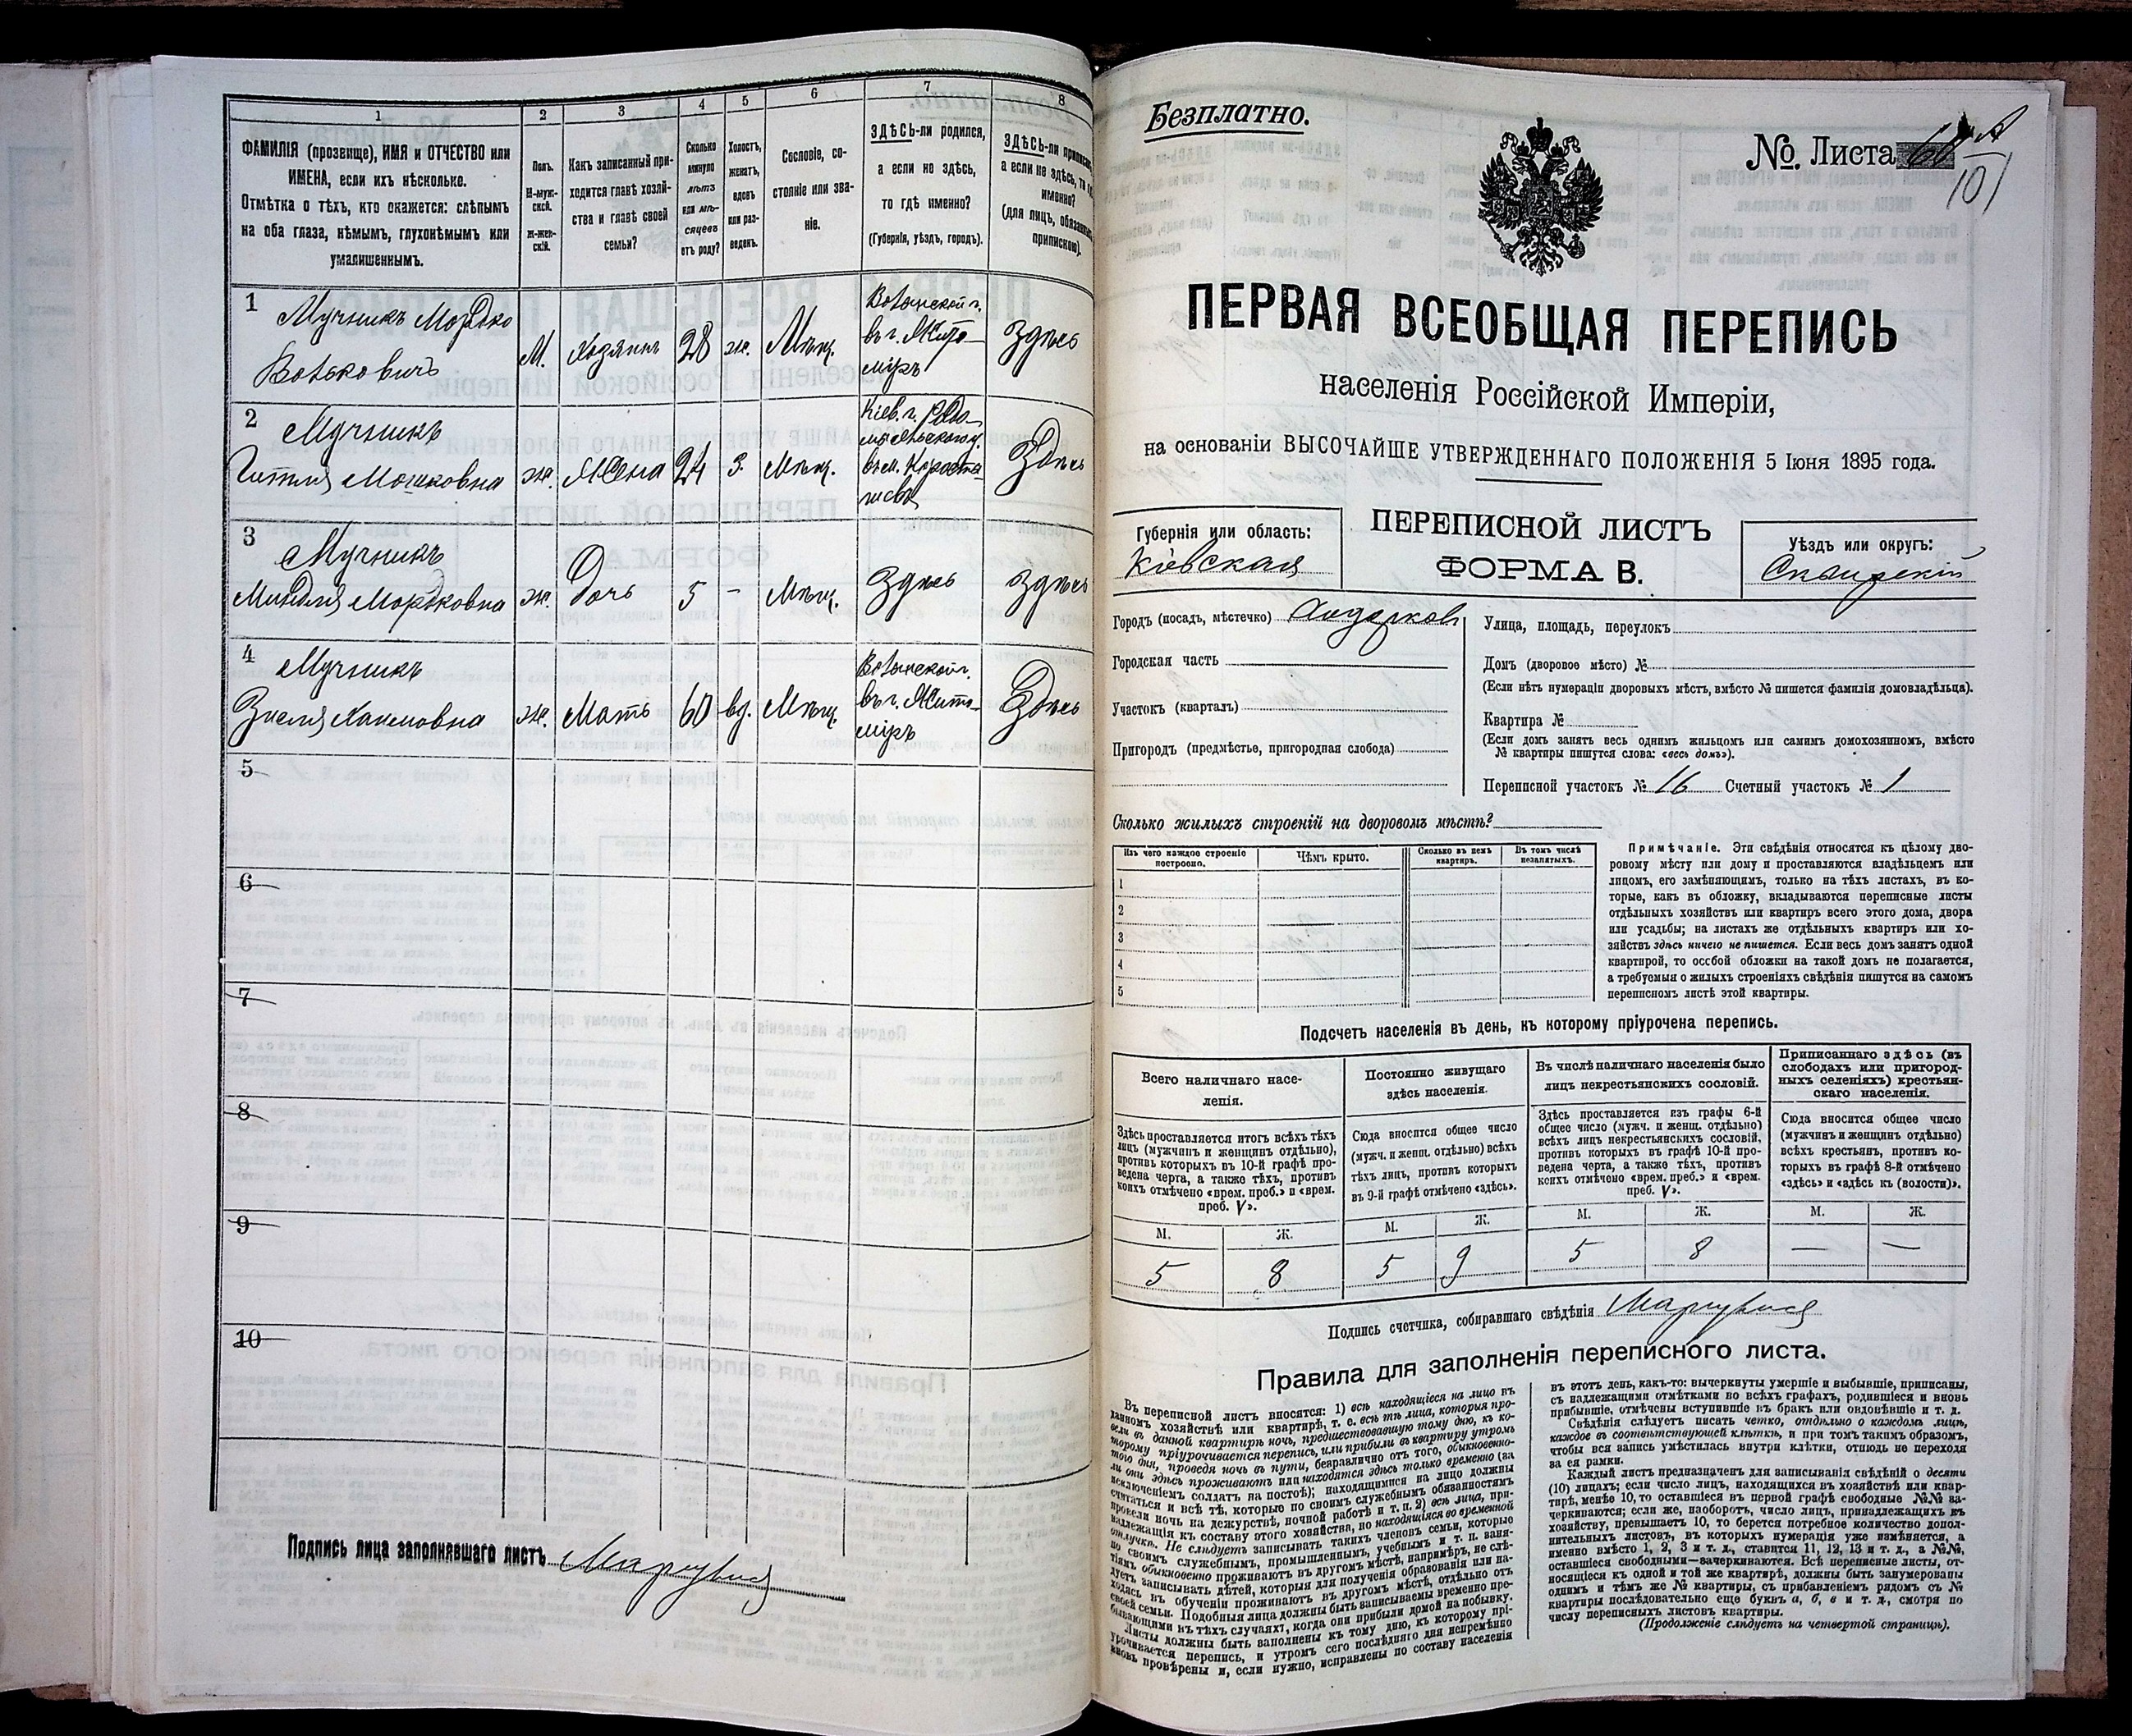 1
2
3
4
5
6
7
8
ФАМИЛІЯ (прозвище), ИМЯ и ОТЧЕСТВО или
ИМЕНА, если ихъ нѣсколько.
Отмѣтка о тѣхъ, кто окажется: слѣпымъ
на оба глаза, нѣмымъ, глухонѣмымъ или
умалишеннымъ.
Полъ.
М-муж-
ской.
Ж-жен-
скій.
Какъ записанный при-
ходится главѣ хозяй-
ства и главѣ своей
семьи?
Сколько
минуло
лѣтъ
или мѣ-
сяцевъ
отъ роду?
Холостъ,
женатъ,
вдовъ
или раз-
веденъ.
Сословіе, со-
стояніе или зва-
ніе.
ЗДѢСЬ-ли родился,
а если не здѣсь,
то гдѣ именно?
(Губернія, уѣздъ, городъ).
ЗДѢСЬ-ли приписанъ,
а если не здѣсь, то гдѣ
именно?
(для лицъ, обязанныхъ
припискою).
1
Мучникъ Мордко
Волькович
М. Хозяинъ 28 ж. Мѣщ.
Волынской г.
въ г. Жито-
мірѣ
здѣсь
2
Мучникъ
Гитля Мошковна
ж. Жена 24 з. Мѣщ.
Кіев. г. Радо-
мысльскаго у.
въ м. Короста-
здѣсь
3
Мучникъ
Миндля Мордковна
ж. Дочь 5 - Мѣщ. здѣсь здѣсь
4
Мучникъ
Хаимовна
ж. Мать 60 вд. Мѣщ.
Волынской г.
въ г. Жито-
мірѣ
здѣсь
5
6
7
8
9
10
Подпись лица заполнявшаго листъ
Безплатно.
№ Листа
101
ПЕРВАЯ ВСЕОБЩАЯ ПЕРЕПИСЬ
населенія Россійской Имперіи,
на основаніи ВЫСОЧАЙШЕ УТВЕРЖДЕННАГО ПОЛОЖЕНІЯ 5 Іюня 1895 года.
Губернія или область:
Кіевская
ПЕРЕПИСНОЙ ЛИСТЪ
ФОРМА В.
Уѣздъ или округъ:
Сквирскій
Городъ (посадъ, мѣстечко) Ходорков
Городская часть
Участокъ (кварталъ)
Пригородъ (предмѣстье, пригородная слобода)
Улица, площадь, переулокъ
Домъ (дворовое мѣсто) №
(Если нѣтъ нумераціи дворовыхъ мѣстъ, вмѣсто № пишется фамилія домовладѣльца).
Квартира №
(Если домъ занятъ весь однимъ жильцомъ или самимъ домохозяиномъ, вмѣсто
№ квартиры пишутся слова: «весь домъ»).
Переписной участокъ № 16 Счетный участокъ № 1
Сколько жилыхъ строеній на дворовомъ мѣстѣ?
Изъ чего каждое строеніе
построено.
Чѣмъ крыто.
Сколько въ немъ
квартиръ.
Въ томъ числѣ
незанятыхъ.
1
2
3
4
5
Примѣчаніе. Эти свѣдѣнія относятся къ цѣлому дво-
ровому мѣсту или дому и проставляются владѣльцемъ или
лицомъ, его замѣняющимъ, только на тѣхъ листахъ, въ ко-
торые, какъ въ обложку, вкладываются переписные листы
отдѣльныхъ хозяйствъ или квартиръ всего этого дома, двора
или усадьбы; на листахъ же отдѣльныхъ квартиръ или хо-
зяйствъ здѣсь ничего не пишется. Если весь домъ занятъ одной
квартирой, то особой обложки на такой домъ не полагается,
а требуемыя о жилыхъ строеніяхъ свѣдѣнія пишутся на самомъ
переписномъ листѣ этой квартиры.
Подсчетъ населенія въ день, къ которому пріурочена перепись.
Всего наличнаго насе-
ленія.
Здѣсь проставляется итогъ всѣхъ тѣхъ
лицъ (мужчинъ и женщинъ отдѣльно),
противъ которыхъ въ 10-й графѣ про-
ведена черта, а также тѣхъ, противъ
коихъ отмѣчено «врем. преб.» и «врем.
преб. V».
Постоянно живущаго
здѣсь населенія.
Сюда вносится общее число
(мужч. и женщ. отдѣльно) всѣхъ
тѣхъ лицъ, противъ которыхъ
въ 9-й графѣ отмѣчено «здѣсь».
Въ числѣ наличнаго населенія было
лицъ некрестьянскихъ сословій.
Здѣсь проставляется изъ графы 6-й
общее число (мужч. и женщ. отдѣльно)
всѣхъ лицъ некрестьянскихъ сословій,
противъ которыхъ въ графѣ 10-й про-
ведена черта, а также тѣхъ, противъ
коихъ отмѣчено «врем. преб.» и «врем.
преб. V».
Приписаннаго здѣсь (въ
слободахъ или пригород-
ныхъ селеніяхъ) крестьян-
скаго населенія.
Сюда вносится общее число
(мужчинъ и женщинъ отдѣльно)
всѣхъ крестьянъ, противъ ко-
торыхъ въ графѣ 8-й отмѣчено
«здѣсь» и «здѣсь къ (волости)».
М. Ж. М. Ж. М. Ж. М. Ж.
5 8 5 9 5 8 — —
Подпись счетчика, собиравшаго свѣдѣнія
Правила для заполненія переписного листа.
Въ переписной листъ вносятся: 1) всѣ находящіеся на лицо въ
данномъ хозяйствѣ или квартирѣ, т. е. всѣ тѣ лица, которыя про-
вели въ данной квартирѣ ночь, предшествовавшую тому дню, къ ко-
торому пріурочивается перепись, или прибыли въ квартиру утромъ
того дня, проведя ночь въ пути, безразлично отъ того, обыкновенно-
ли они здѣсь проживаютъ или находятся здѣсь только временно (за
исключеніемъ солдатъ на постоѣ); находящимися на лицо должны
считаться и всѣ тѣ, которые по своимъ служебнымъ обязанностямъ
провели ночь на дежурствѣ, ночной работѣ и т. п. 2) всѣ лица, при-
надлежащія къ составу этого хозяйства, но находящіяся во временной
отлучкѣ. Не слѣдуетъ записывать такихъ членовъ семьи, которые
по своимъ служебнымъ, промышленнымъ, учебнымъ и т. п. заня-
тіямъ обыкновенно проживаютъ въ другомъ мѣстѣ, напримѣръ, не слѣ-
дуетъ записывать дѣтей, которыя для полученія образованія или на-
ходясь въ обученіи проживаютъ въ другомъ мѣстѣ, отдѣльно отъ
своей семьи. Подобныя лица должны быть записываемы временно пре-
бывающими въ тѣхъ случаяхъ, когда они прибыли домой на побывку.
Листы должны быть заполнены къ тому дню, къ которому прі-
урочивается перепись, и утромъ сего послѣдняго дня непремѣнно
вновь провѣрены и, если нужно, исправлены по составу населенія
въ этотъ день, какъ-то: вычеркнуты умершіе и выбывшіе, приписаны,
съ надлежащими отмѣтками во всѣхъ графахъ, родившіеся и вновь
прибывшіе, отмѣчены вступившіе въ бракъ или овдовѣвшіе и т. д.
Свѣдѣнія слѣдуетъ писать четко, отдѣльно о каждомъ лицѣ,
каждое въ соотвѣтствующей клѣткѣ, и при томъ такимъ образомъ,
чтобы вся запись умѣстилась внутри клѣтки, отнюдь не переходя
за ея рамки.
Каждый листъ предназначенъ для записыванія свѣдѣній о десяти
(10) лицахъ; если число лицъ, находящихся въ хозяйствѣ или квар-
тирѣ, менѣе 10, то оставшіеся въ первой графѣ свободные №№ за-
черкиваются; если же, наоборотъ, число лицъ, принадлежащихъ къ
хозяйству, превышаетъ 10, то берется потребное количество допол-
нительныхъ листовъ, въ которыхъ нумерація уже измѣняется, а
именно вмѣсто 1, 2, 3 и т. д., ставится 11, 12, 13 и т. д., а №№,
оставшіеся свободными—зачеркиваются. Всѣ переписные листы, от-
носящіеся къ одной и той же квартирѣ, должны быть занумерованы
однимъ и тѣмъ же № квартиры, съ прибавленіемъ рядомъ съ №
квартиры послѣдовательно еще буквъ а, б, в и т. д., смотря по
числу переписныхъ листовъ квартиры.
(Продолженіе слѣдуетъ на четвертой страницѣ).